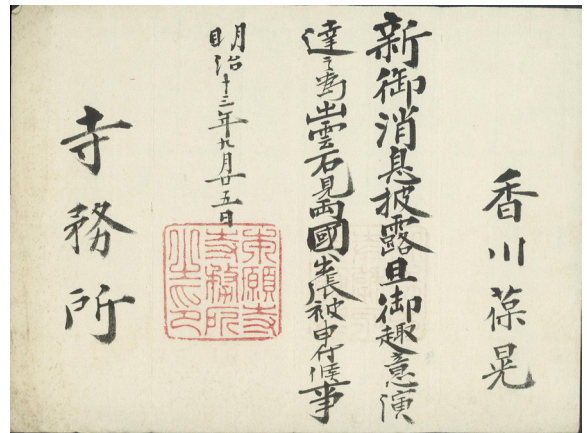 香川葆晃
新御消息披露且御趣意演
達之為出雲石見両國出張被申付候事
明治十三年九月廿五日
寺務所
東願寺
寺務所